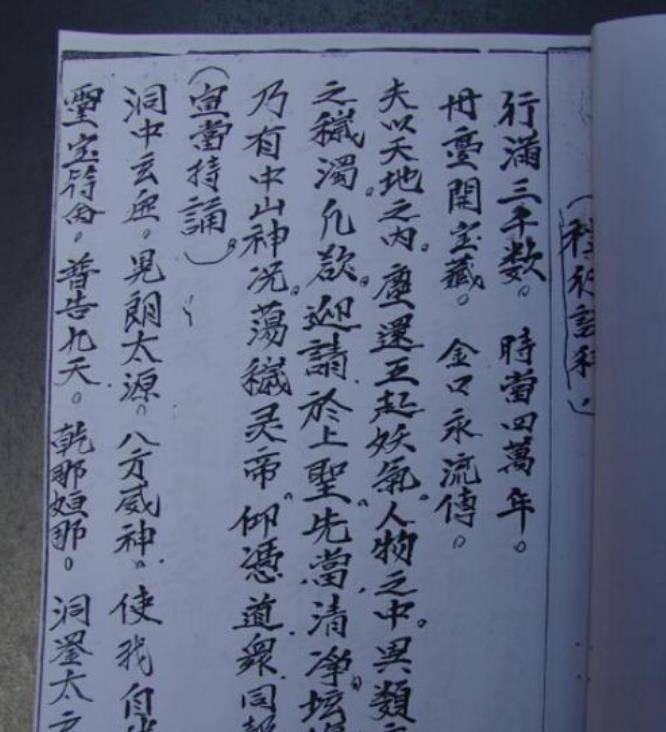 行滿三千数。時當四萬年。
丹臺開宝藏。金口永流傳。
夫以天地之内。塵還互起妖氣。人物之中。異類
之穢濁。凡欲。迎請於上聖。先當清净坛
乃有中山神咒。蕩穢灵帝。仰憑道衆同
(宣當持誦)。
洞中玄虛。晃朗太源。八方威神。使我自
靈宝符命。普告九天。乾那姮那。洞罡太